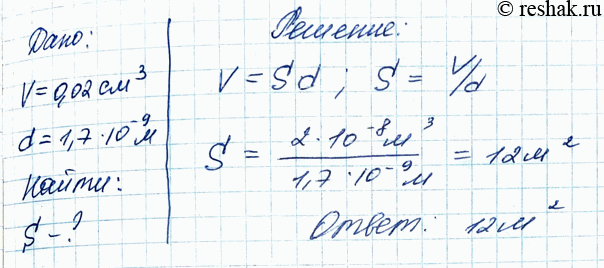 © reshak.ru
Дано:
V = 0,02 см³
d = 1,7 · 10⁻⁹ м
Найти:
S - ?
Решение:
V = S d ; S = V/d
S = 2 · 10⁻⁸ м³ / 1,7 · 10⁻⁹ м = 12 м²
Ответ: 12 м²